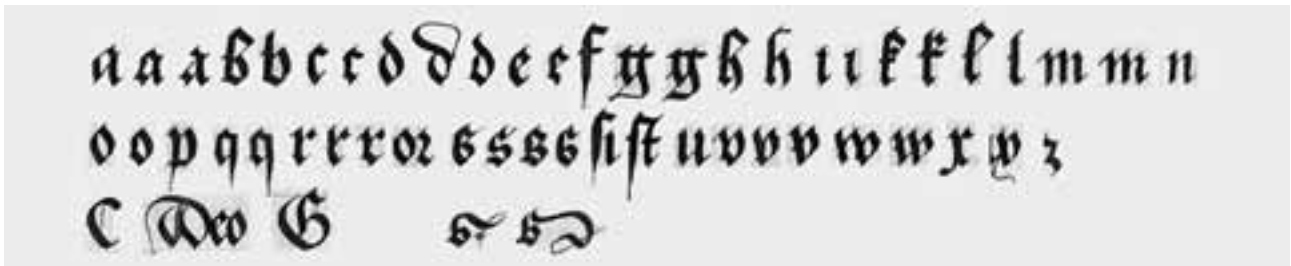 a a a b b c c d d d e e f g g h h i i k k l l m m n
o o p q q r r r or s s s s ſi ſt u v v v w w x y z
C Deo G s s